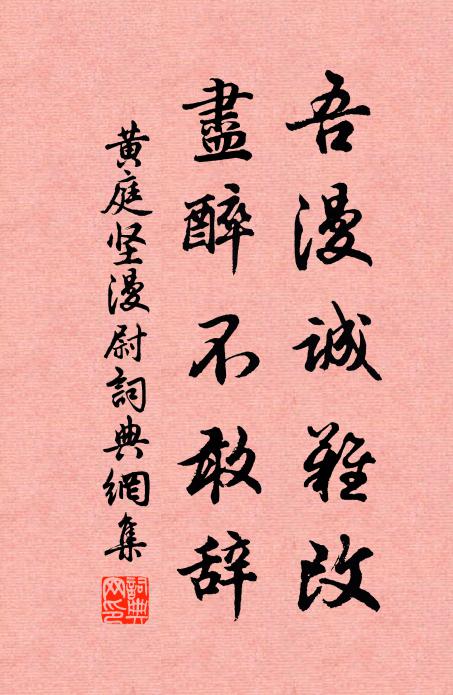 吾漫誠難改
盡醉不敢辞
黄庭坚漫尉詞典網集
詞典網印